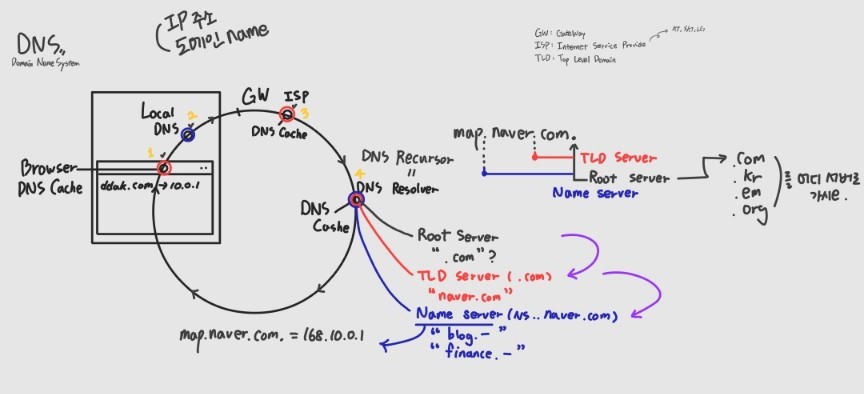 DNS
Domain Name System
IP 주소
도메인 name
GW: Gateway
ISP: Internet Service Provide
KT, SKT, LG
TLD: Top Level Domain
GW
ISP
3
DNS Cache
Local
DNS
2
1
Browser
DNS Cache
ddak.com. → 10.0.1
DNS Recursor
"
4
DNS
Resolver
DNS
Cashe
map.naver.com.
TLD Server
Root server
Name server
.com
.kr
.em
.org
어디 서버로
가시오.
Root Server
" .com"?
TLD server (.com)
"naver.com"
Name server (NS.. naver.com)
"blog.- "
"finance.- "
map.naver.com. = 168.10.0.1